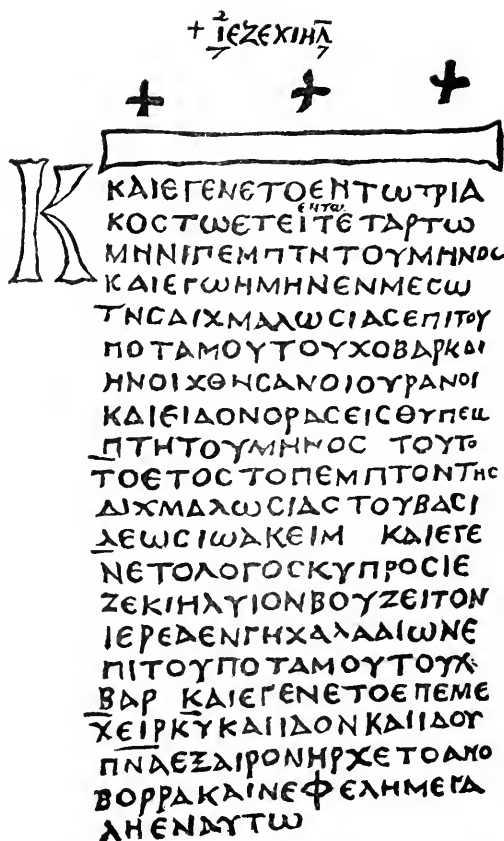 + ΙΕΖΕΚΙΗΛ
Κ
ΚΑΙΕΓΕΝΕΤΟΕΝΤΩΤΡΙΑ
ΕΝΤΩ
ΚΟСΤΩΕΤΕΙΤΕΤΑΡΤΩ
ΜΗΝΙΠΕΜΠΤΗΤΟΥΜΗΝΟС
ΚΑΙΕΓΩΗΜΗΝΕΝΜΕСΩ
ΤΗСΑΙΧΜΑΛΩСΙΑСΕΠΙΤΟΥ
ΠΟΤΑΜΟΥΤΟΥΧΟΒΑΡΚΑΙ
ΗΝΟΙΧΘΗСΑΝΟΙΟΥΡΑΝΟΙ
ΚΑΙΕΙΔΟΝΟΡΑСΕΙСΘΥΠΕΜ
ΠΤΗΤΟΥΜΗΝΟС ΤΟΥΤΟ
ΤΟΕΤΟСΤΟΠΕΜΠΤΟΝΤΗС
ΑΙΧΜΑΛΩСΙΑСΤΟΥΒΑСΙ
ΛΕΩСΙΩΑΚΕΙΜ ΚΑΙΕΓΕ
ΝΕΤΟΛΟΓΟСΚΥΠΡΟСΙΕ
ΖΕΚΙΗΛΥΙΟΝΒΟΥΖΕΙΤΟΝ
ΙΕΡΕΑΕΝΓΗΧΑΛΔΑΙΩΝΕ
ΠΙΤΟΥΠΟΤΑΜΟΥΤΟΥΧΟ
ΒΑΡ ΚΑΙΕΓΕΝΕΤΟΕΠΕΜΕ
ΧΕΙΡΚΥΚΑΙΙΔΟΝΚΑΙΙΔΟΥ
ΠΝΑΕΞΑΙΡΟΝΗΡΧΕΤΟΑΠΟ
ΒΟΡΡΑΚΑΙΝΕΦΕΛΗΜΕΓΑ
ΛΗΕΝΑΥΤΩ